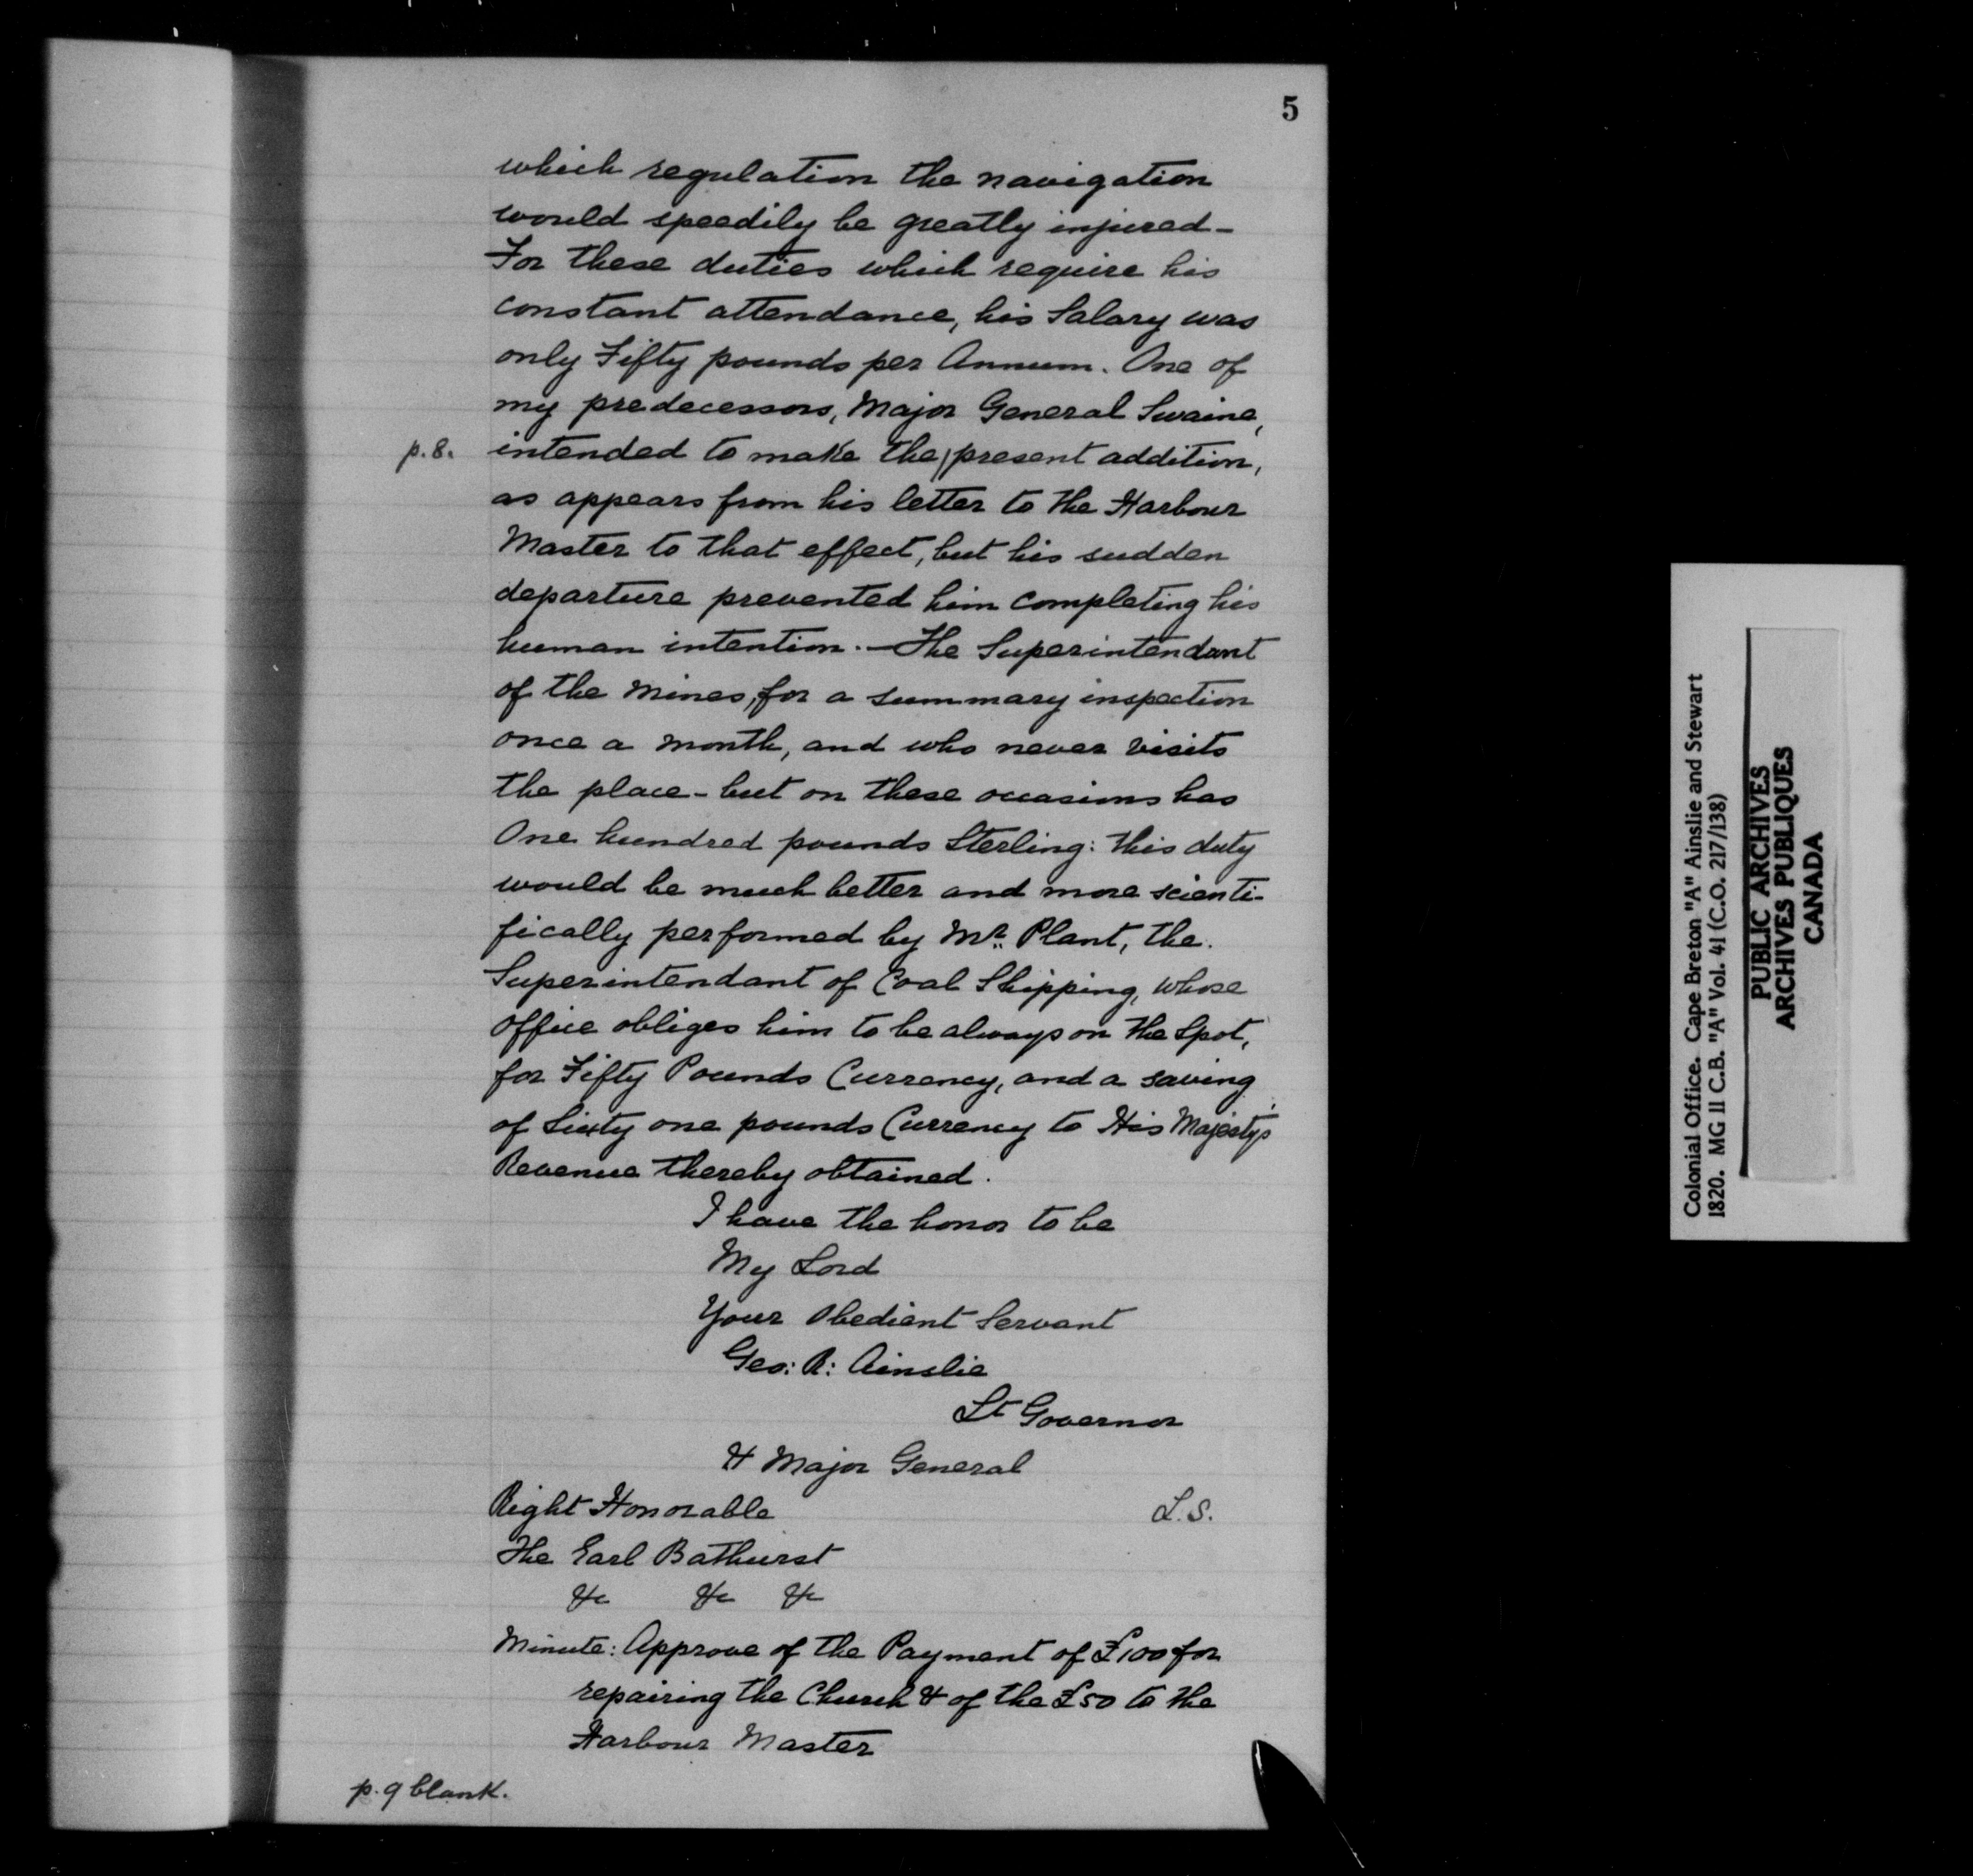 5
which regulation the navigation
would speedily be greatly injured-
For these duties which require his
constant attendance, his Salary was
only Fifty pounds per Annum. One of
my predecessors, Major General Swaine,
p.8. intended to make the/present addition,
as appears from his letter to the Harbour
Master to that effect, but his sudden
departure prevented him completing his
human intention.-The Superintendant
of the Mines, for a summary inspection
once a month, and who never visits
the place-but on these occasions has
One hundred pounds Sterling: This duty
would be much better and more scienti-
fically performed by Mr. Plant, the
Superintendant of Coal Shipping, whose
office obliges him to be always on the Spot,
for Fifty Pounds Currency, and a saving
of Sixty one pounds Currency to His Majesty's
Revenue thereby obtained.
I have the honor to be
My Lord
Your Obedient Servant
Geo: R: Ainslie
Lt Governor
& Major General
Right Honorable
L.S.
The Earl Bathurst
&c &c &c
Minute: Approve of the Payment of £100 for
repairing the Church & of the £50 to the
Harbour Master
p. 9 blank.
Colonial Office. Cape Breton "A" Ainslie and Stewart
1820. MG 11 C.B. "A" Vol. 41 (C.O. 217/138)
PUBLIC ARCHIVES
ARCHIVES PUBLIQUES
CANADA